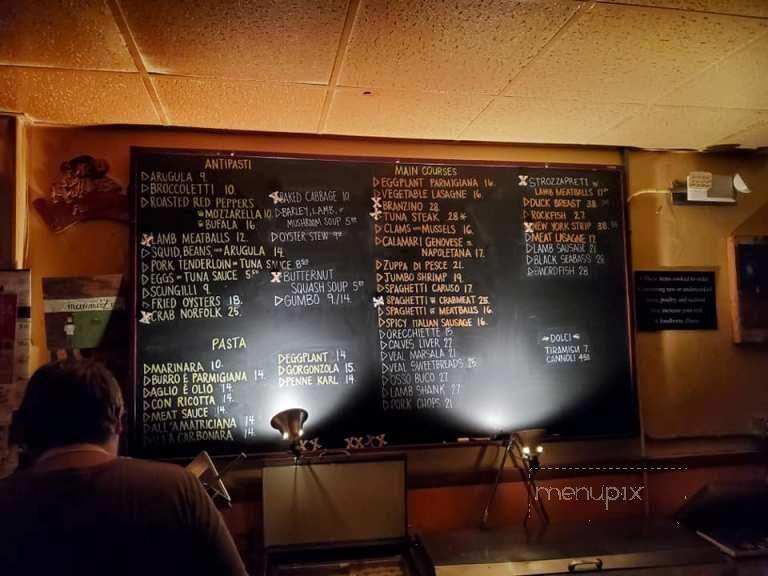 ANTIPASTI
ARUGULA 9.
BROCCOLETTI 10.
ROASTED RED PEPPERS
MOZZARELLA 10.
BUFALA 16
LAMB MEATBALLS 12.
SQUID, BEANS, ARUGULA 14.
PORK TENDERLOIN TUNA SAUCE
EGGS TUNA SAUCE
SCUNGILLI 9.
FRIED OYSTERS 18.
CRAB NORFOLK 25.
BAKED CABBAGE 10
BARLEY, LAMB,
MUSHROOM SOUP
OYSTER STEW
BUTTERNUT
SQUASH SOUP
GUMBO 9/14.
PASTA
MARINARA 10.
BURRO E PARMIGIANA 14.
AGLIO E OLIO 14.
CON RICOTTA 14.
MEAT SAUCE 14.
ALL'AMATRICIANA 14.
ALLA CARBONARA 14.
EGGPLANT 14
GORGONZOLA 15.
PENNE KARL 14.
MAIN COURSES
EGGPLANT PARMIGIANA 16.
VEGETABLE LASAGNE 16.
BRANZINO 28.
TUNA STEAK 28
CLAMS MUSSELS 16.
CALAMARI GENOVESE
NAPOLETANA 17.
ZUPPA DI PESCE 21.
JUMBO SHRIMP 19.
SPAGHETTI CARUSO 17.
SPAGHETTI CRABMEAT 25.
SPAGHETTI MEATBALLS 16.
SPICY ITALIAN SAUSAGE 16.
ORECCHIETTE 15
CALVES LIVER 22
VEAL MARSALA 21
VEAL SWEETBREADS
OSSO BUCO 27.
LAMB SHANK 27.
PORK CHOPS 21
STROZZAPRETI
LAMB MEATBALLS
DUCK BREAST
ROCKFISH 27
NEW YORK STRIP
MEAT LASAGNE
LAMB SAUSAGE 21
BLACK SEABASS 28
SWORDFISH 28.
DOLCI
TIRAMISU 7.
CANNOLI
XX XXXX
menupix